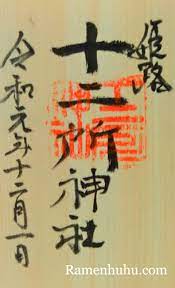 姫路
十二所神社
令和元年十二月一日
Ramenhuhu.com